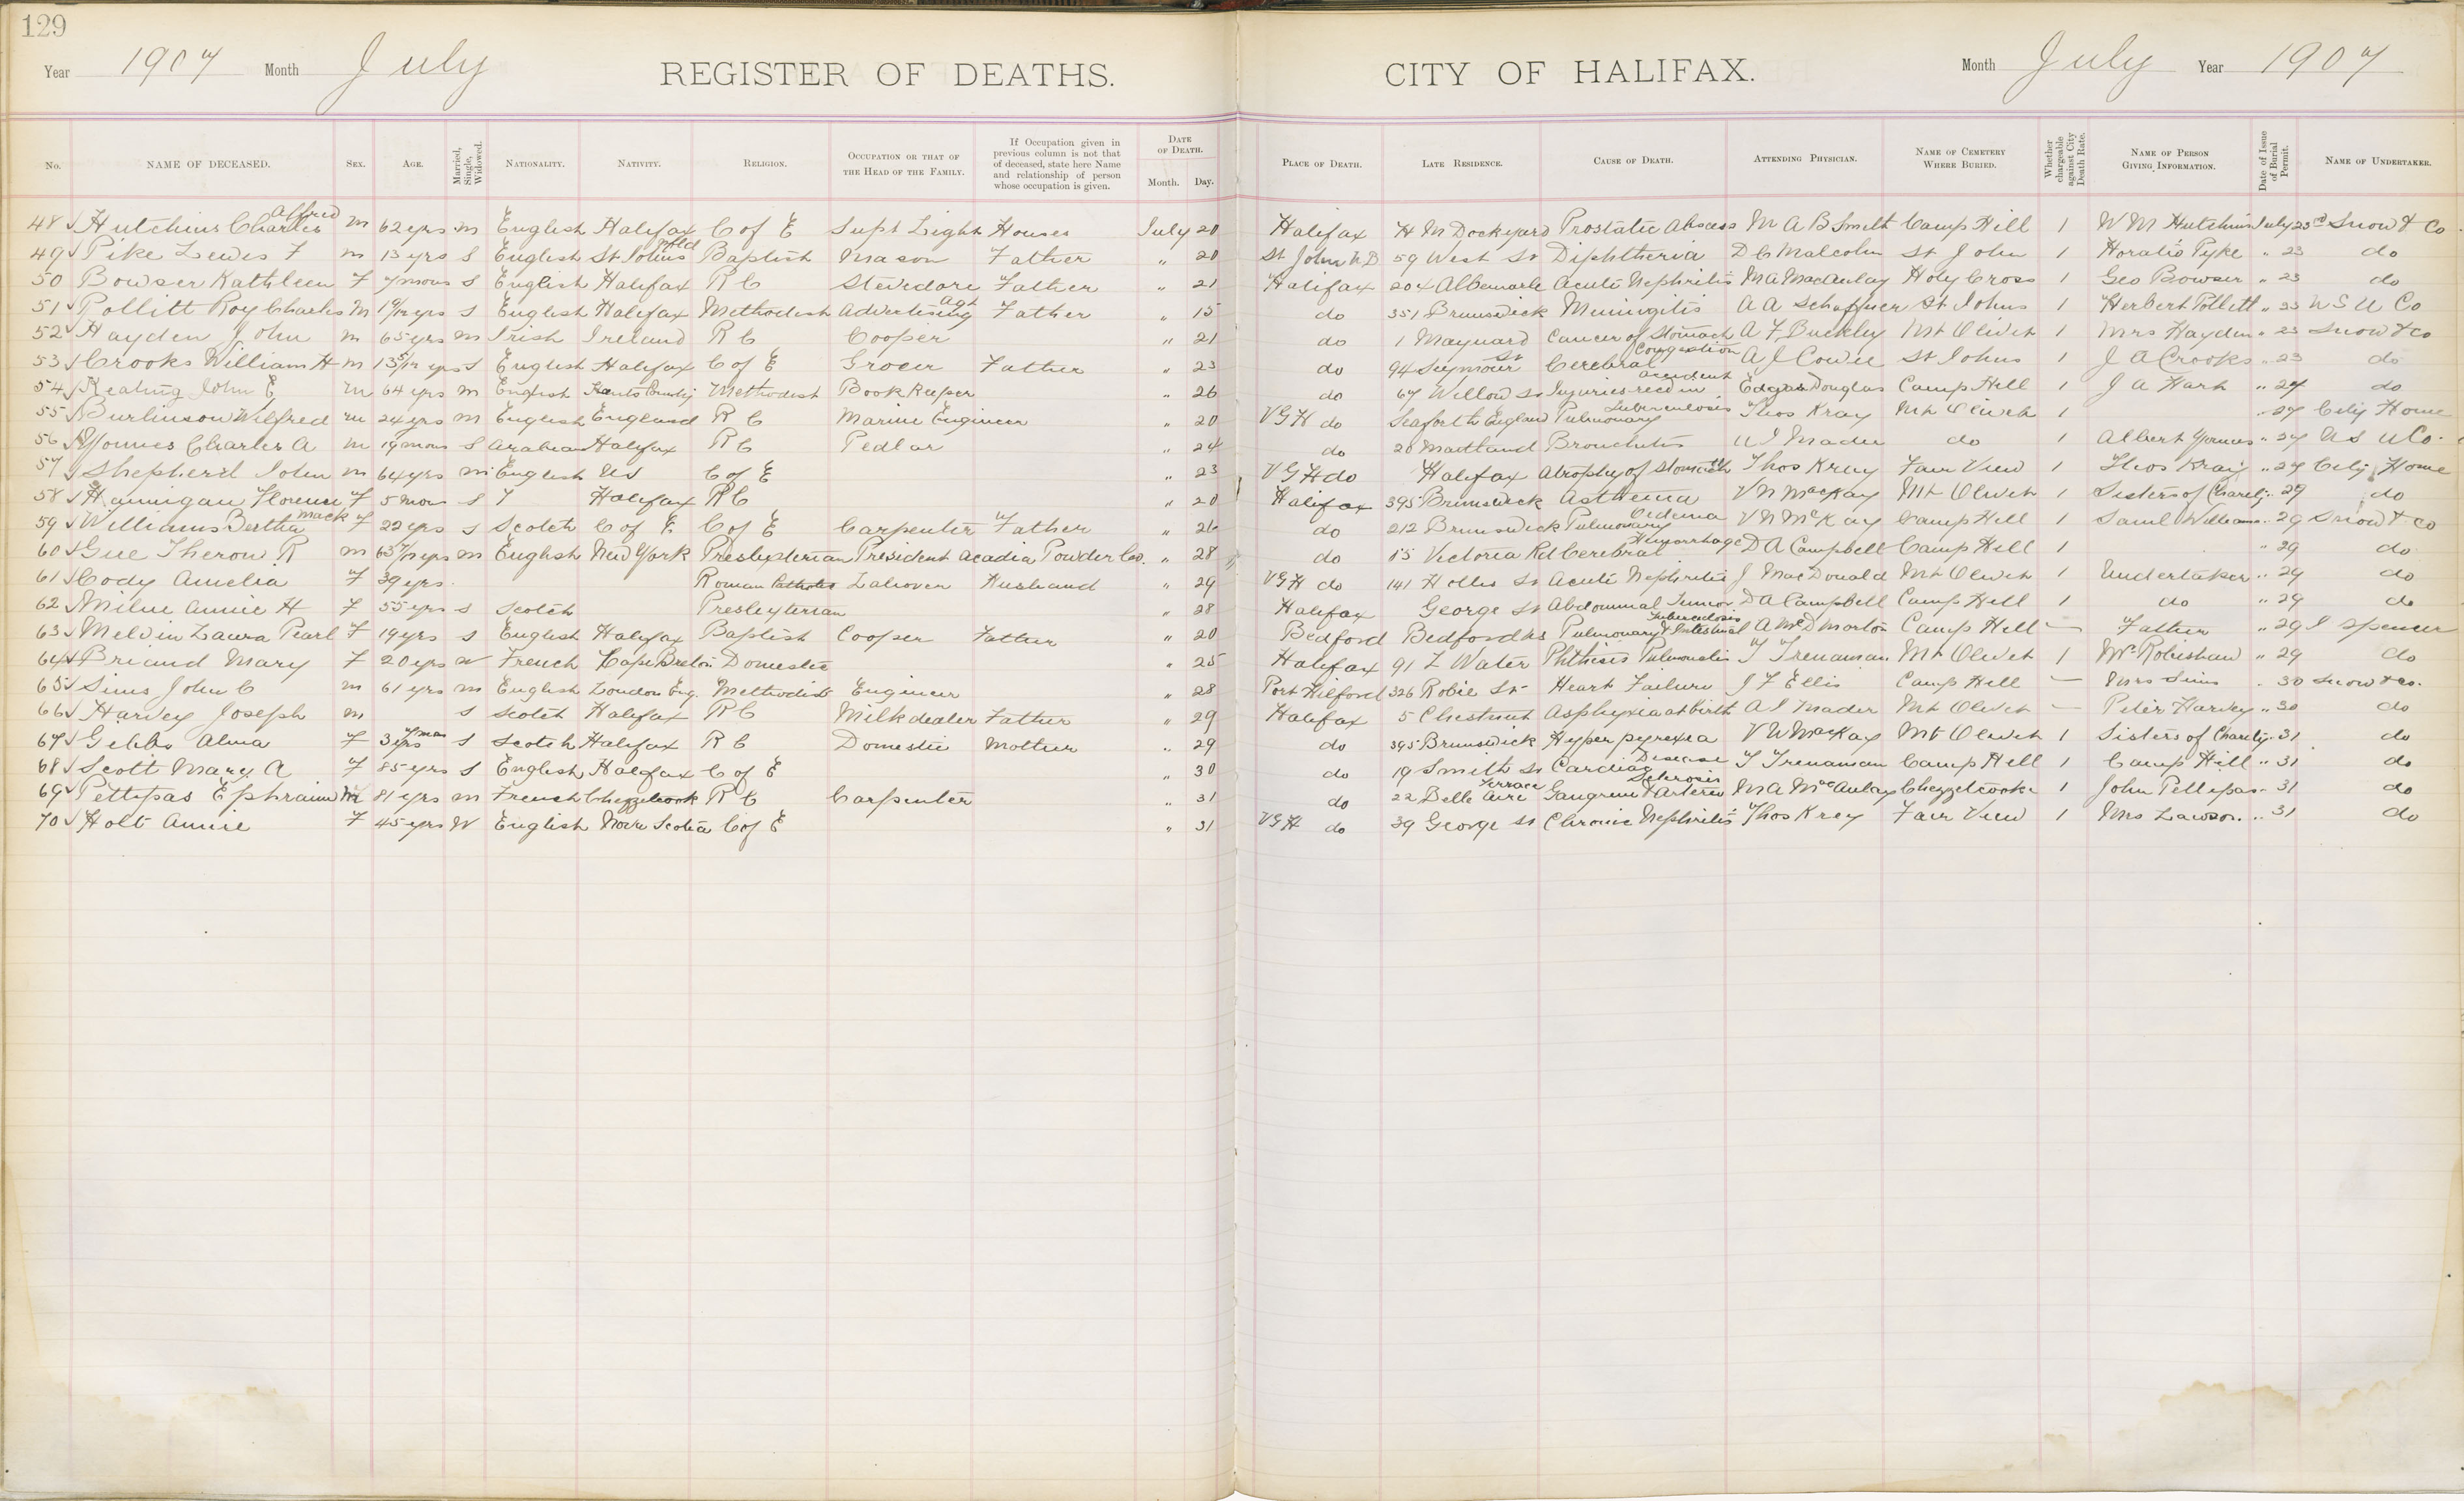 129
Year 1907 Month July REGISTER OF DEATHS. CITY OF HALIFAX. Month July Year 1907
No. NAME OF DECEASED. SEX. AGE. Married, Single, Widowed. NATIONALITY. NATIVITY. RELIGION. OCCUPATION OR THAT OF THE HEAD OF THE FAMILY. If Occupation given in previous column is not that of deceased, state here Name and relationship of person whose occupation is given. DATE OF DEATH. Month. Day. PLACE OF DEATH. LATE RESIDENCE. CAUSE OF DEATH. ATTENDING PHYSICIAN. NAME OF CEMETERY WHERE BURIED. Whether chargeable against City Death Rate. NAME OF PERSON GIVING INFORMATION. Date of Issue of Burial Permit. NAME OF UNDERTAKER.
48 Hutchins Charles Alfred m 62 yrs m English Halifax C of E Supt Light Houses July 20 Halifax H M Dockyard Prostatic Abscess M A B Smith Camp Hill 1 W M Hutchins July 23rd Snow & Co
49 Pike Lewis F m 13 yrs S English St Johns Nfld Baptist Mason Father " 20 St John N.B. 59 West St Diphtheria D C Malcolm St John 1 Horatio Pyke " 23 do
50 Bowser Kathleen F 7 mons S English Halifax R C Stevedore Father " 21 Halifax 204 Albemarle Acute Nephritis M A MacAulay Holy Cross 1 Geo Bowser " 23 do
51 Pollitt Roy Charles M yrs S English Halifax Methodist Advertising Agt Father " 15 do 351 Brunswick Meningitis A A Schaffner St Johns 1 Herbert Pollett " 23 N S U Co
52 Hayden John m 65 yrs m Irish Ireland R C Cooper " 21 do 1 Maynard Cancer of Stomach A F Buckley Mt Olivet 1 Mrs Hayden " 23 Snow & Co
53 Crooks William H m 13 5/12 yrs S English Halifax C of E Grocer Father " 23 do 94 Seymour St Cerebral Congestion A J Cowie St Johns 1 J A Crooks " 23 do
54 Keating John E m 64 yrs m English Hants County Methodist Book Keeper " 26 do 67 Willow St Injuries recd in accident Edgar Douglas Camp Hill 1 J A Hart " 27 do
55 Burlinson Wilfred m 24 yrs m English England R C Marine Engineer " 20 V G H do Seaforth England Pulmonary Tuberculosis Thos Kray Mt Olivet 1 " 27 City Home
56 Younes Charles A m 19 mons S Arabian Halifax R C Pedlar " 24 do 20 Maitland Bronchitis A I Mader do 1 Albert Younes " 27 N S U Co.
57 Shepherd John m 64 yrs m English US C of E " 23 V G H do Halifax Atrophy of Stomach Thos Kray Fair View 1 Thos Kray " 27 City Home
58 Hannigan Florence F 5 mons S Halifax R C " 20 Halifax 395 Brunswick Asthenia V N MacKay Mt Olivet 1 Sisters of Charity " 29 do
59 Williams Bertha Mack F 22 yrs S Scotch C of E C of E Carpenter Father " 26 do 212 Brunswick Pulmonary Oedema V N McKay Camp Hill 1 Saml Williams " 29 Snow & Co
60 Gue Theron R m yrs m English New York Presbyterian President Acadia Powder Co. " 28 do 15 Victoria Rd Cerebral Hemorrhage D A Campbell Camp Hill 1 " 29 do
61 Cody Amelia F 39 yrs Roman Catholic Labover Husband " 29 V G H do 141 Hollis St Acute Nephritis J MacDonald Mt Olivet 1 Undertaker " 29 do
62 Milne Annie H F 55 yrs S Scotch Presbyterian " 28 Halifax George St Abdominal Tumor D A Campbell Camp Hill 1 do " 29 do
63 Melvin Laura Pearl F 19 yrs S English Halifax Baptist Cooper Father " 20 Bedford Bedford NS Pulmonary & Intestinal Tuberculosis A McD Morton Camp Hill — Father " 29 J Spencer
64 Briand Mary F 20 yrs French Cape Breton Domestic " 25 Halifax 91 L Water Phthisis Pulmonalis T Trenaman Mt Olivet 1 Mr Robishaw " 29 do
65 Sims John C m 61 yrs m English London Eng. Methodist Engineer " 28 Port Hilford 326 Robie St Heart Failure J F Ellis Camp Hill — Mrs Sims " 30 Snow & Co.
66 Harvey Joseph m S Scotch Halifax R C Milkdealer Father " 29 Halifax 5 Chestnut Asphyxia at birth A I Mader Mt Olivet — Peter Harvey " 30 do
67 Gibbs Alma F 3 yrs 7 mons S Scotch Halifax R C Domestic Mother " 29 do 395 Brunswick Hyperpyrexia V N MacKay Mt Olivet 1 Sisters of Charity " 31 do
68 Scott Mary A F 85 yrs S English Halifax C of E " 30 do 19 Smith St Cardiac Disease T Trenaman Camp Hill 1 Camp Hill " 31 do
69 Pettipas Ephraim M 81 yrs m French Chezzetcook R C Carpenter " 31 do 22 Belle Aire Terrace Gangrene & Arterio Sclerosis M A MacAulay Chezzetcooke 1 John Pettipas " 31 do
70 Holt Annie F 45 yrs W English Nova Scotia C of E " 31 V G H do 39 George St Chronic Nephritis Thos Kray Fair View 1 Mrs Lawson " 31 do